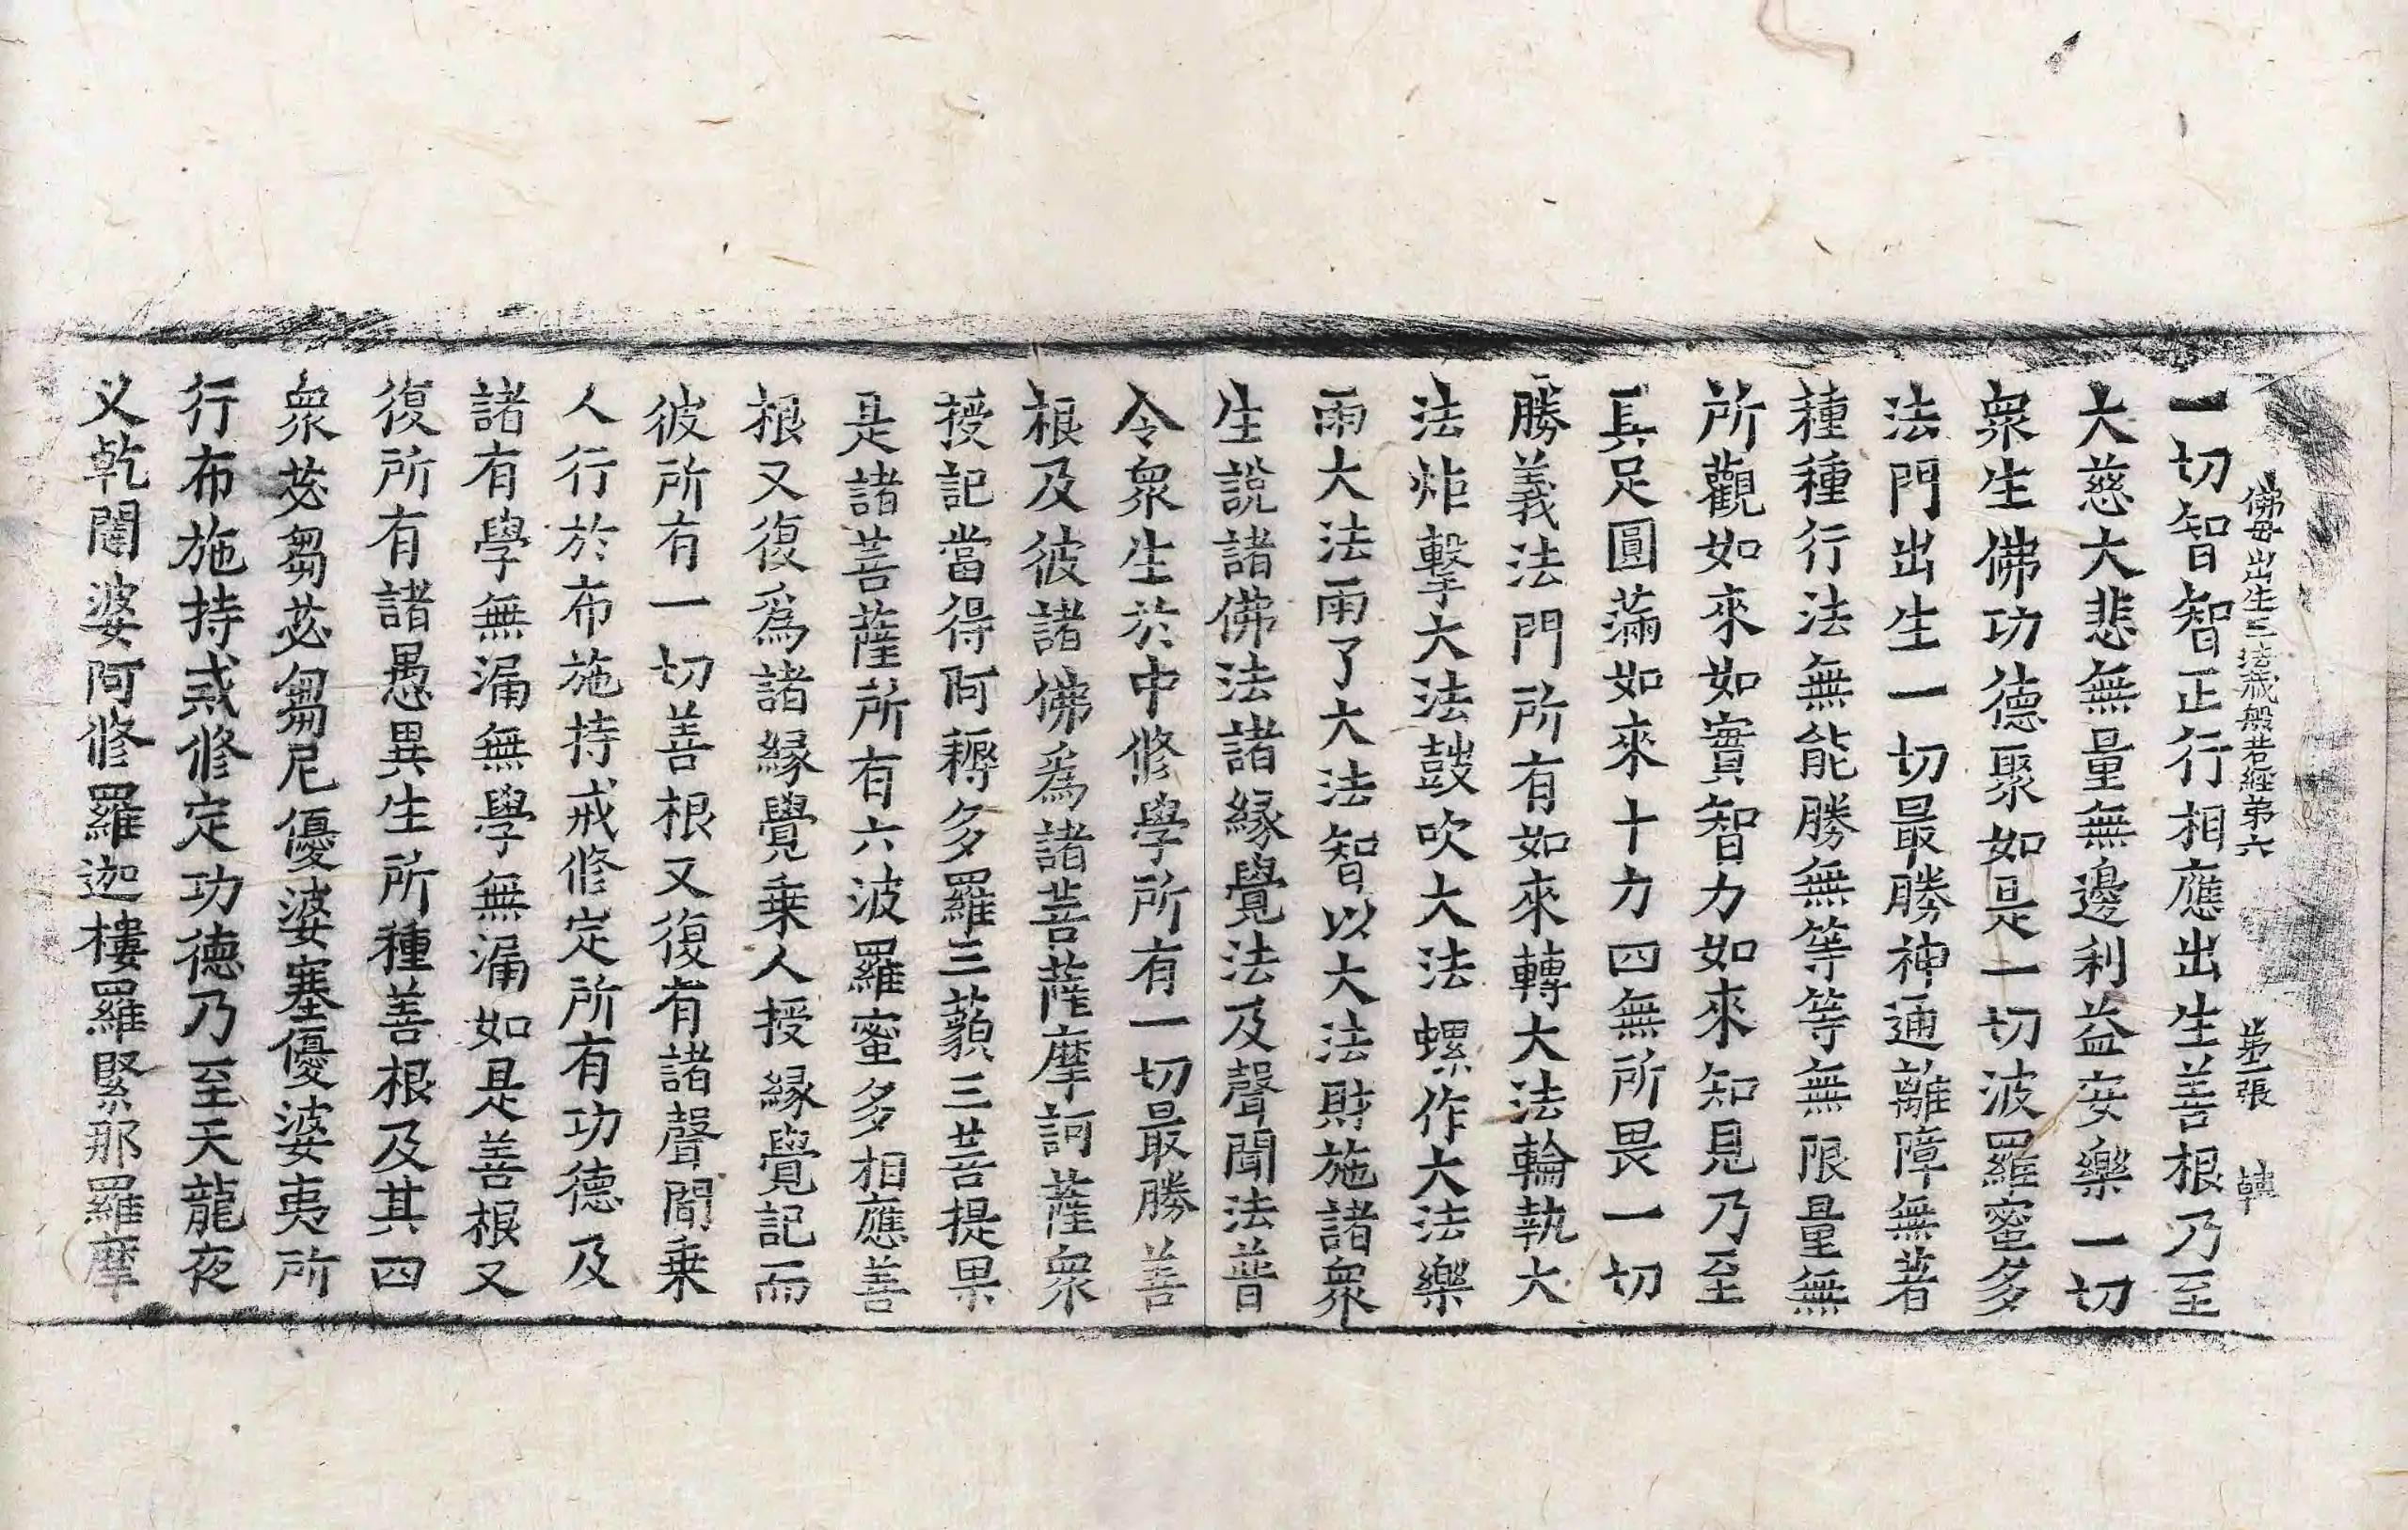 佛母出生三法藏般若經第六　第二張　韓
一切智智正行相應出生善根乃至
大慈大悲無量無邊利益安樂一切
衆生佛功德聚如是一切波羅蜜多
法門出生一切最勝神通離障無著
種種行法無能勝無等等無限量無
所觀如來如實智力如來知見乃至
具足圓滿如來十力四無所畏一切
勝義法門所有如來轉大法輪執大
法炬擊大法鼓吹大法螺作大法樂
雨大法雨了大法智以大法財施諸衆
生說諸佛法諸緣覺法及聲聞法普
令衆生於中修學所有一切最勝善
根及彼諸佛爲諸菩薩摩訶薩衆
授記當得阿耨多羅三藐三菩提果
是諸菩薩所有六波羅蜜多相應善
根又復爲諸緣覺乗人授緣覺記而
彼所有一切善根又復有諸聲聞乗
人行於布施持戒修定所有功德及
諸有學無漏無學無漏如是善根又
復所有諸愚異生所種善根及其四
衆苾芻苾芻尼優婆塞優婆夷所
行布施持戒修定功德乃至天龍夜
叉乾闥婆阿修羅迦樓羅緊那羅摩